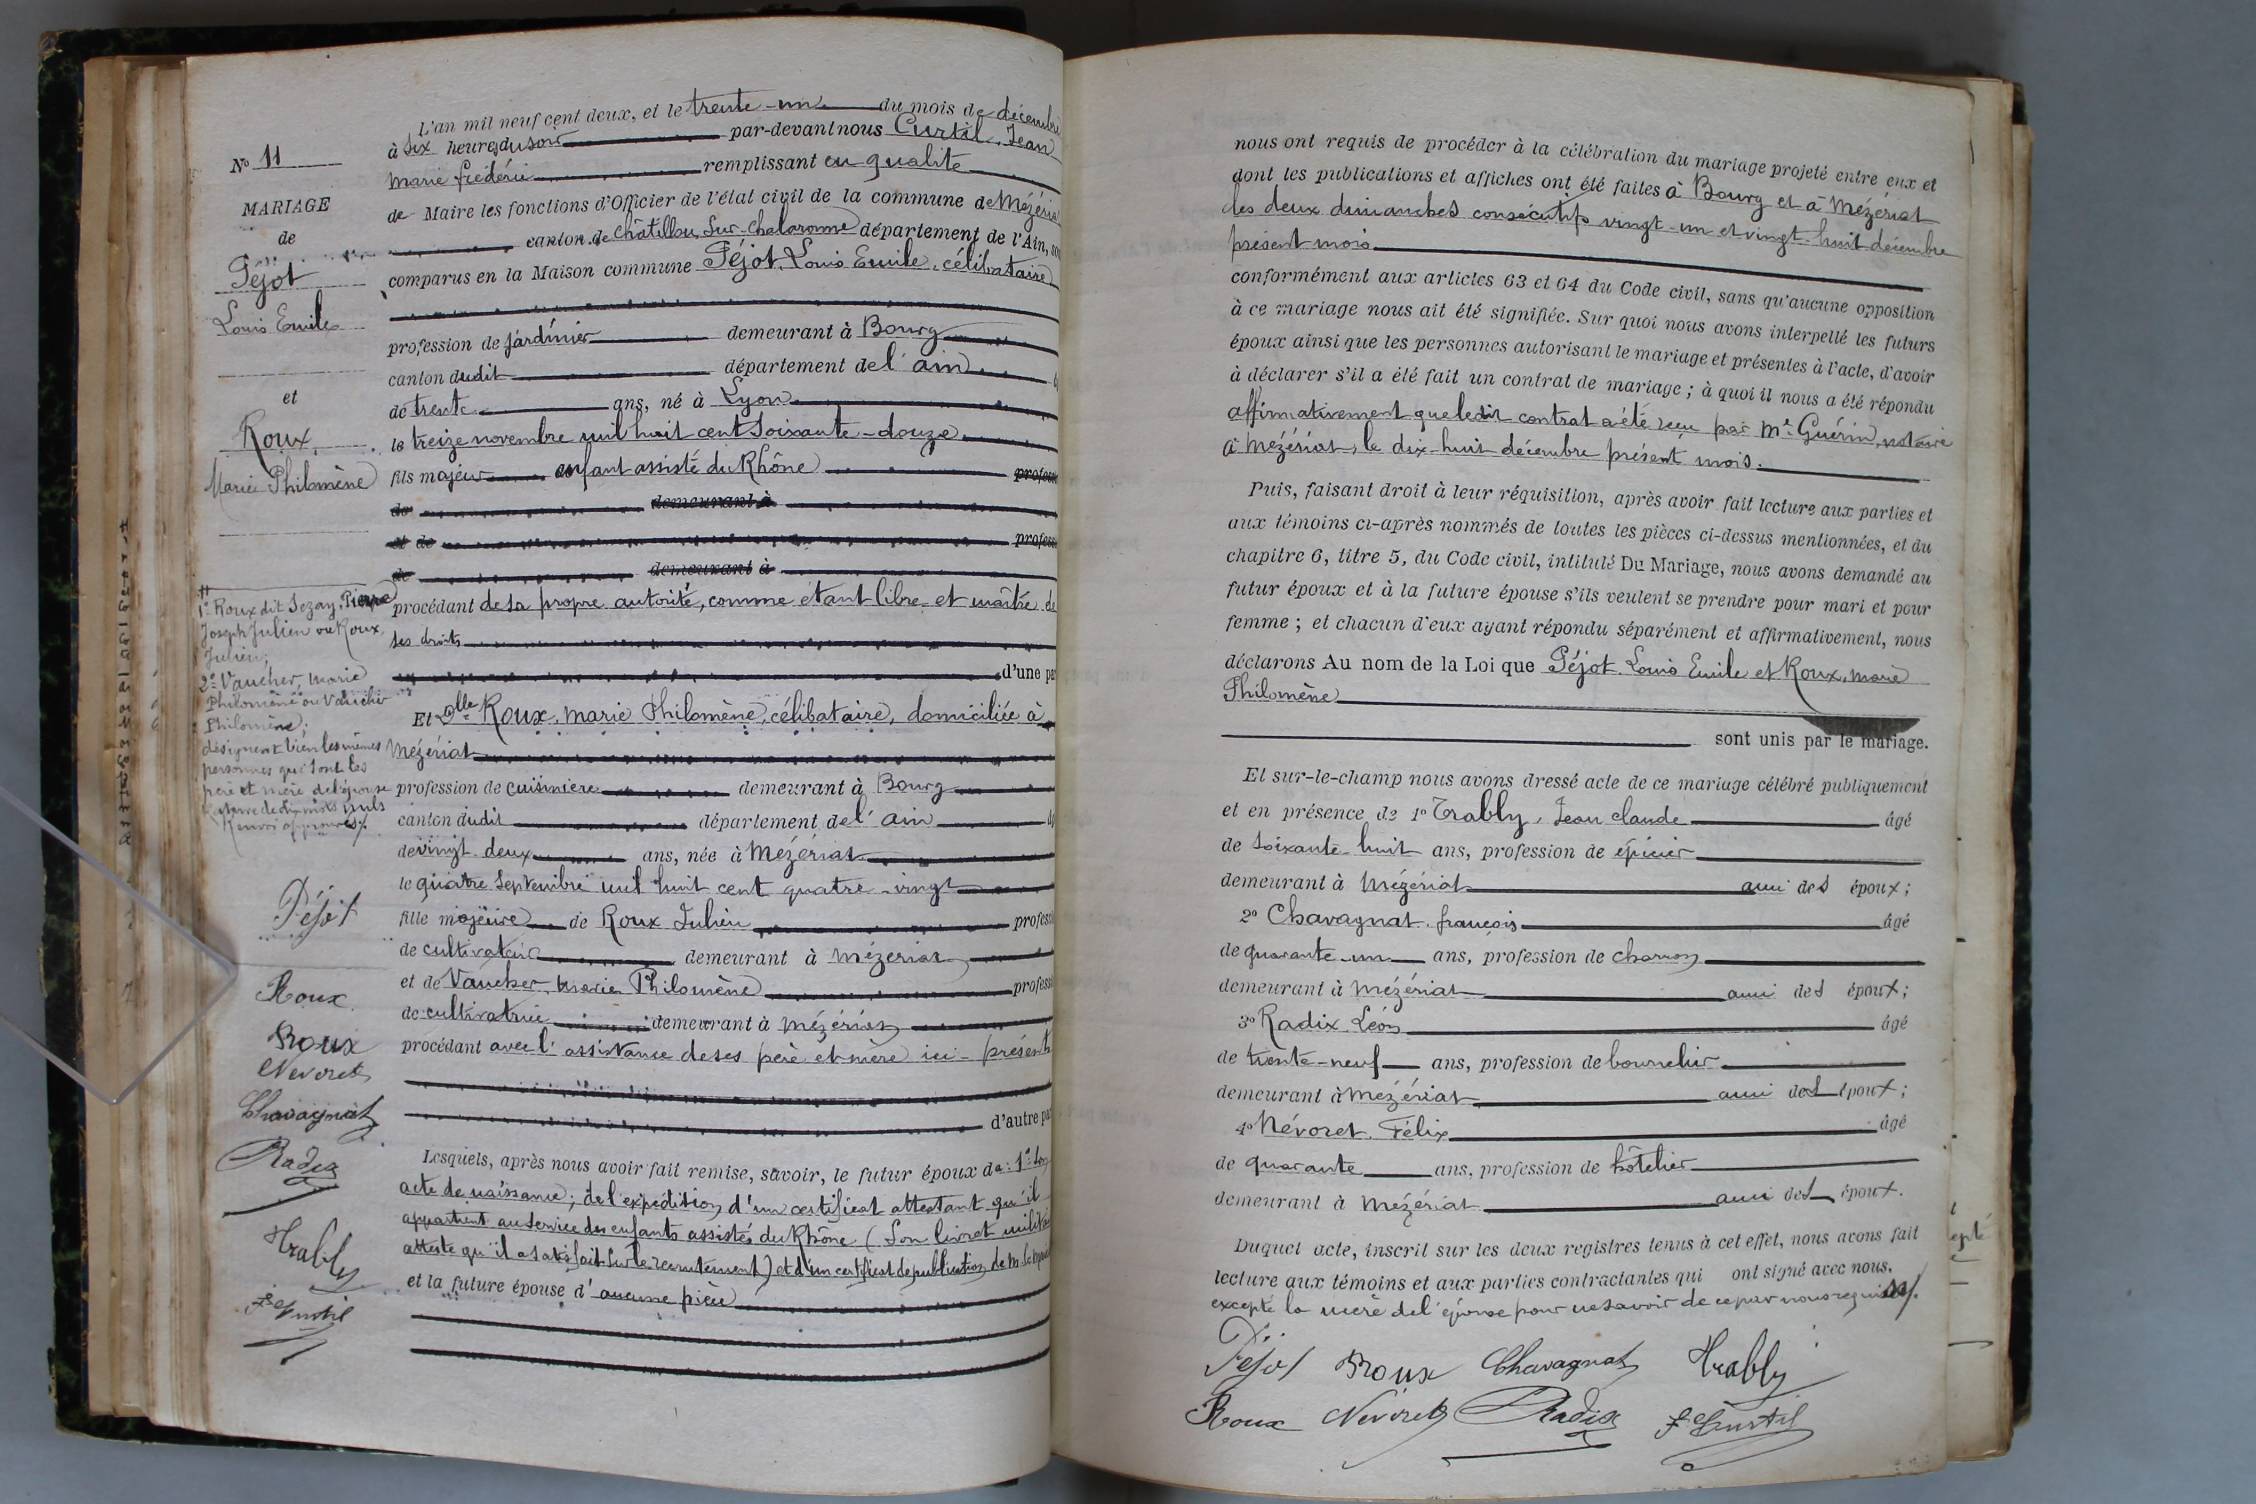 No 11
MARIAGE
de
Péjot
Louis Emile
et
Roux
Marie Philomène
1° Roux dit Sezay, Pierre
Joseph Julien ou Roux,
Julien;
2° Vaucher, Marie
Philomène ou Vaucher
Philomène;
désignent bien les mêmes
personnes qui sont les
père et mère de l'épouse
nuls
Renvoi approuvé
Péjot
Roux
Roux
Nevoret
Chavagnat
Radix
Trably
Fc Curtil
L'an mil neuf cent deux, et le trente-un du mois de décembre
à six heures du soir par-devant nous Curtil, Jean
Marie frédéric remplissant en qualité
de Maire les fonctions d'Officier de l'état civil de la commune de Mézériat
canton de Châtillon-Sur-Chalaronne département de l'Ain, son
comparus en la Maison commune Péjot, Louis Emile, célibataire
profession de jardinier demeurant à Bourg
canton dudit département de l'ain
de trente ans, né à Lyon
le treize novembre mil huit cent soixante-douze
fils majeur enfant assisté du Rhône profess
de demeurant à
et de profess
de demeurant à
procédant de sa propre autorité, comme étant libre et maître de
ses droits
d'une par
Et Dlle Roux, Marie Philomène, célibataire, domiciliée à
Mézériat
profession de cuisinière demeurant à Bourg
canton dudit département de l'ain
de vingt-deux ans, née à Mézériat
le quatre Septembre mil huit cent quatre-vingt
fille majeure de Roux Julien professi
de cultivateur demeurant à Mézériat
et de Vaucher Marie Philomène professi
de cultivatrice demeurant à Mézériat
procédant avec l'assistance de ses père et mère ici-présents
d'autre par
Lesquels, après nous avoir fait remise, savoir, le futur époux de: 1° son
acte de naissance; de l'expédition d'un certificat attestant qu'il
appartient au service des enfants assistés du Rhône (Son livret militaire
atteste qu'il a satisfait sur le recrutement) et d'un certificat de publication de M. le
et la future épouse d'aucune pièce
nous ont requis de procéder à la célébration du mariage projeté entre eux et
dont les publications et affiches ont été faites à Bourg et à Mézériat
les deux dimanches consécutifs vingt-un et vingt-huit décembre
présent mois
conformément aux articles 63 et 64 du Code civil, sans qu'aucune opposition
à ce mariage nous ait été signifiée. Sur quoi nous avons interpellé les futurs
époux ainsi que les personnes autorisant le mariage et présentes à l'acte, d'avoir
à déclarer s'il a été fait un contrat de mariage; à quoi il nous a été répondu
affirmativement que ledit contrat a été reçu par Me Guérin, notaire
à Mézériat, le dix-huit décembre présent mois.
Puis, faisant droit à leur réquisition, après avoir fait lecture aux parties et
aux témoins ci-après nommés de toutes les pièces ci-dessus mentionnées, et du
chapitre 6, titre 5, du Code civil, intitulé Du Mariage, nous avons demandé au
futur époux et à la future épouse s'ils veulent se prendre pour mari et pour
femme; et chacun d'eux ayant répondu séparément et affirmativement, nous
déclarons Au nom de la Loi que Péjot Louis Emile et Roux, Marie
Philomène
sont unis par le mariage.
Et sur-le-champ nous avons dressé acte de ce mariage célébré publiquement
et en présence de 1° Trably, Jean Claude âgé
de soixante-huit ans, profession de épicier
demeurant à Mézériat ami des époux;
2° Chavagnat, françois âgé
de quarante-un ans, profession de charron
demeurant à Mézériat ami des époux;
3° Radix Léon âgé
de trente-neuf ans, profession de bourrelier
demeurant à Mézériat ami des époux;
4° Névoret Félix âgé
de quarante ans, profession de hôtelier
demeurant à Mézériat ami des époux.
Duquel acte, inscrit sur les deux registres tenus à cet effet, nous avons fait
lecture aux témoins et aux parties contractantes qui ont signé avec nous.
excepté la mère de l'épouse pour ne savoir de ce par nous requise
Péjot Roux Chavagnat Trably
Roux Nevoret Radix Fc Curtil